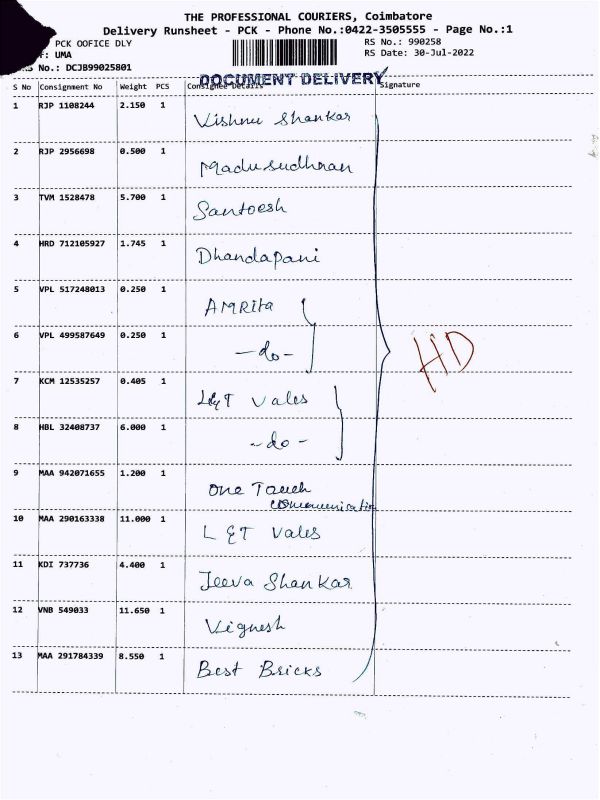 THE PROFESSIONAL COURIERS, Coimbatore
Delivery Runsheet - PCK - Phone No.:0422-3505555 - Page No.:1
PCK OOFICE DLY RS No.: 990258
: UMA RS Date: 30-Jul-2022
No.: DCJB99025801
DOCUMENT DELIVERY
S No Consignment No Weight PCS Consignee Details Signature
1 RJP 1108244 2.150 1 Vishnu Shankar
2 RJP 2956698 0.500 1 Madhusudhnan
3 TVM 1528478 5.700 1 Santoesh
4 HRD 712105927 1.745 1 Dhandapani
5 VPL 517248013 0.250 1 AMRita
6 VPL 499587649 0.250 1 -do-
HD
7 KCM 12535257 0.405 1 L&T Vales
8 HBL 32408737 6.000 1 -do-
9 MAA 942071655 1.200 1 One Touch
communication
10 MAA 290163338 11.000 1 L &T Vales
11 KDI 737736 4.400 1 Jeeva Shankar
12 VNB 549033 11.650 1 Vignesh
13 MAA 291784339 8.550 1 Best Bricks